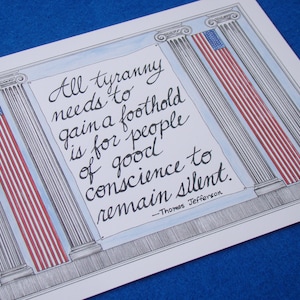 All tyranny
needs to
gain a foothold
is for people
of good
conscience to
remain silent.
—Thomas Jefferson